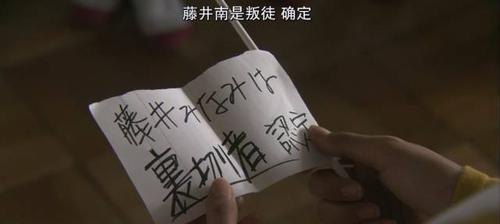 藤井南是叛徒 确定
藤井みなみは
裏切者 認定